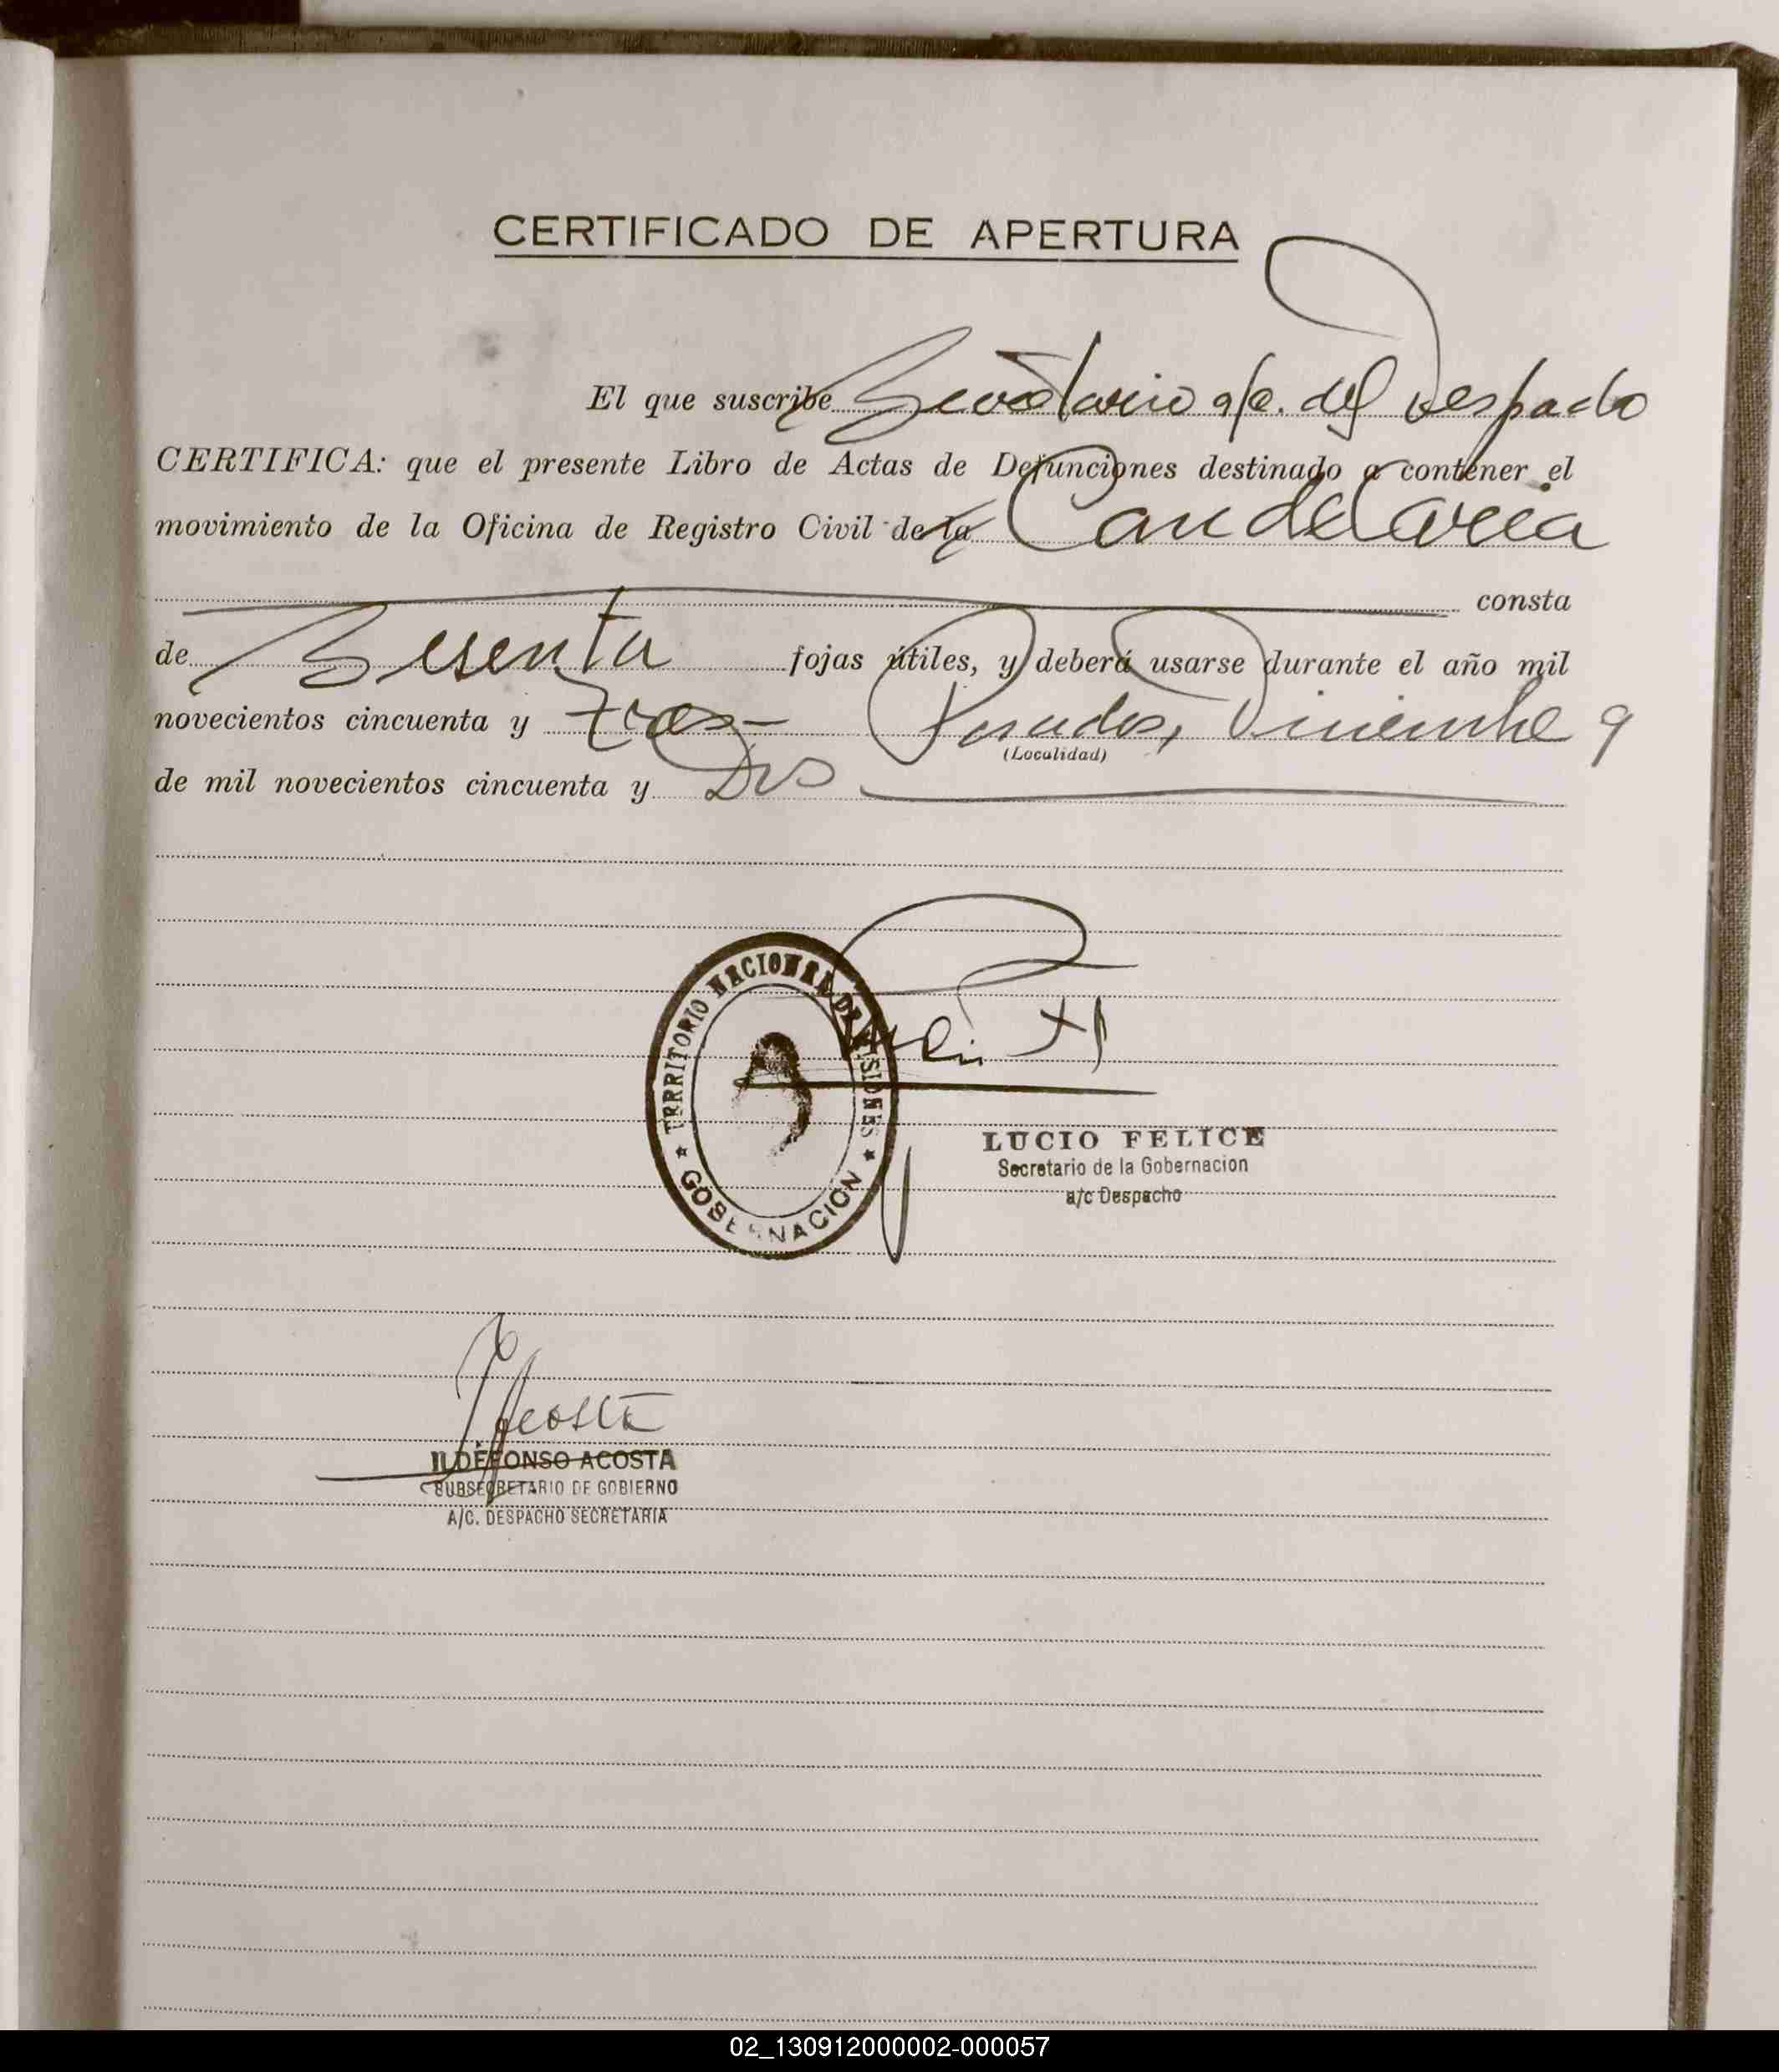 CERTIFICADO DE APERTURA
El que suscribe Secretario a/c. del Despacho
CERTIFICA: que el presente Libro de Actas de Defunciones destinado a contener el
movimiento de la Oficina de Registro Civil de la Candelaria
consta
de Sesenta fojas útiles, y deberá usarse durante el año mil
novecientos cincuenta y tres Posadas, Diciembre 9
(Localidad)
de mil novecientos cincuenta y Dos
TERRITORIO NACIONAL DE MISIONES
GOBERNACION
LUCIO FELICE
Secretario de la Gobernacion
a/c Despacho
Acosta
ILDEFONSO ACOSTA
SUBSECRETARIO DE GOBIERNO
A/C. DESPACHO SECRETARIA
02_130912000002-000057